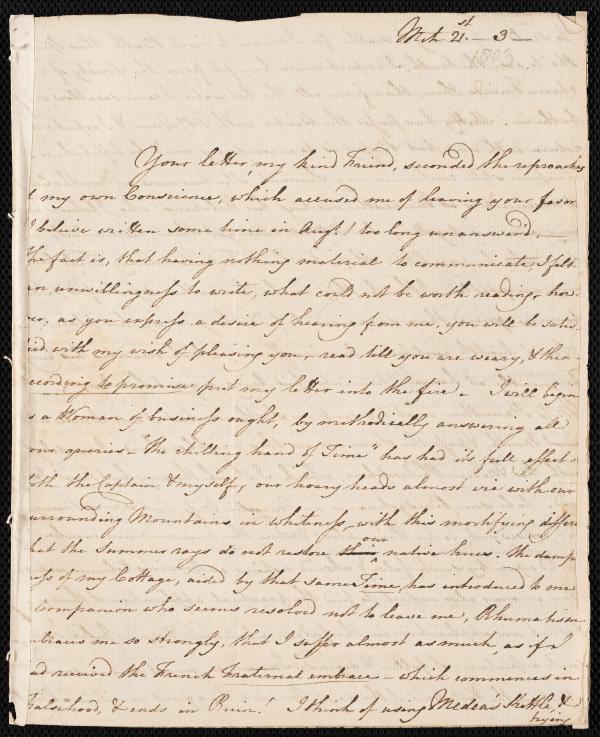 Mch 21.st - 3 -
1803
Your letter, my kind Friend, seconded the reproaches
my own Conscience, which accused me of leaving your favor
I believe written some time in Augt. / too long unanswer'd, —
The fact is, that having nothing material to communicate, I felt
an unwillingness to write, what could not be worth reading, how-
ver, as you express a desire of hearing from me, you will be satis
fied with my wish of pleasing you, read till you are weary, & then -
ccording to promise put my letter into the fire - I will begin
as a Woman of business ought, by methodically answering all
your queries - "the chilling hand of Time" has had its full effect
both the Captain & myself, our hoary heads almost vie with our
surrounding Mountains in whiteness, with this mortifying differe
that the Summer rays do not restore our native hues. The damp
ness of my Cottage, aided by that same Time, has introduced to me
Companion who seems resolved not to leave me, Rhumatism
mbraces me so strongly, that I suffer almost as much, as if I
had received the French Fraternal embrace - which commences in
falsehood, & ends in Ruin! I think of using Medea's Kettle, &
trying